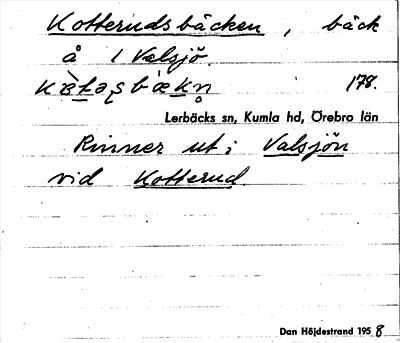 Kotterudsbäcken, bäck
å 1 Valsjö
178.
Lerbäcks sn, Kumla hd, Örebro län
Rinner ut i Valsjön
vid Kotterud.
Dan Höjdestrand 1958